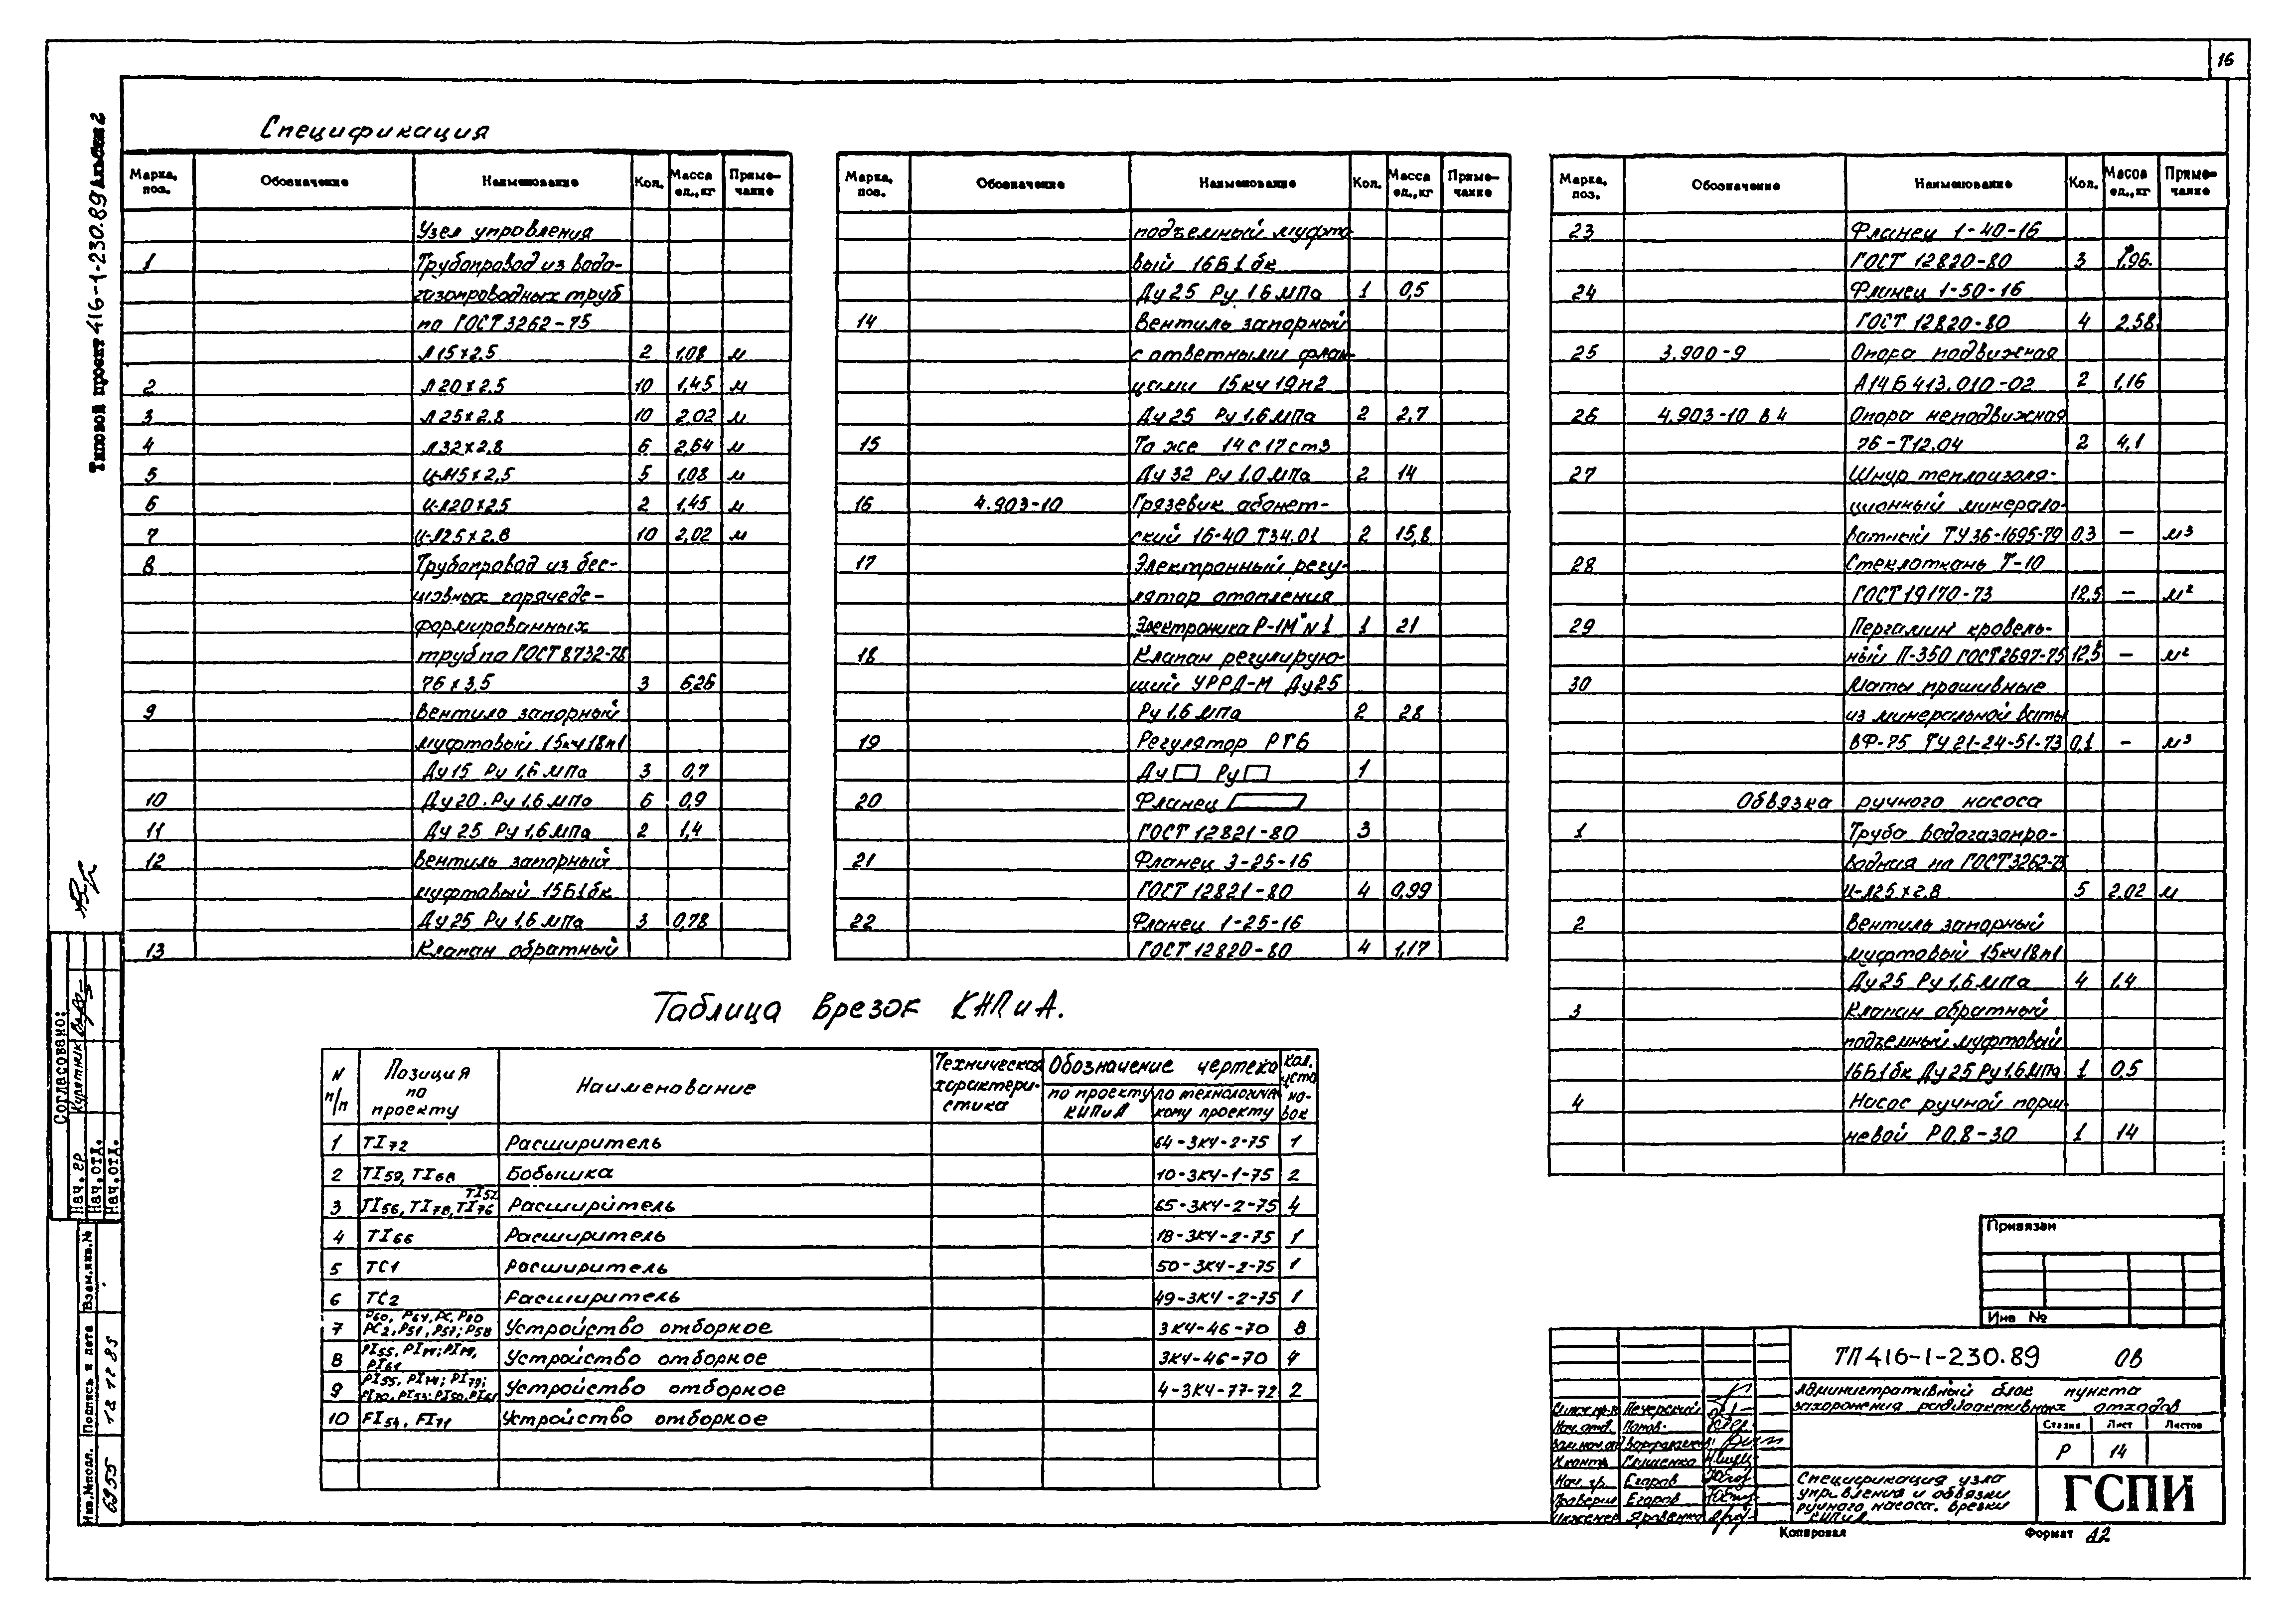 16
Типовой проект 416-1-230.89 Альбом 2
Спецификация
Марка, поз. Обозначение Наименование Кол. Масса ед., кг Приме-чание
Узел управления
1 Трубопровод из водо-
газопроводных труб
по ГОСТ 3262-75
Л15х2,5 2 1,08 м
2 Л20х2,5 10 1,45 м
3 Л25х2,8 10 2,02 м
4 Л32х2,8 6 2,64 м
5 Ц-Л15х2,5 5 1,08 м
6 Ц-Л20х2,5 2 1,45 м
7 Ц-Л25х2,8 10 2,02 м
8 Трубопровод из бес-
шовных горячеде-
формированных
труб по ГОСТ 8732-78
76х3,5 3 6,26
9 Вентиль запорный
муфтовый 15кч18п1
Ду15 Ру 1,6 мПа 3 0,7
10 Ду20. Ру 1,6 мПа 6 0,9
11 Ду 25 Ру 1,6 мПа 2 1,4
12 Вентиль запорный
муфтовый 15Б1бк
Ду 25 Ру 1,6 мПа 3 0,78
13 Клапан обратный
Марка, поз. Обозначение Наименование Кол. Масса ед., кг Приме-чание
подъемный муфто
вый 16Б1бк
Ду 25 Ру 1,6 мПа 1 0,5
14 Вентиль запорный
с ответными флан-
цами 15кч19п2
Ду 25 Ру 1,6 мПа 2 2,7
15 То же 14с17ст3
Ду 32 Ру 1,0 мПа 2 14
16 4.903-10 Грязевик абонет-
ский 16-40 Т34.01 2 15,8
17 Электронный регу-
лятор отопления
Электроника Р-1М" N1 1 21
18 Клапан регулирую-
щий УРРД-М Ду25
Ру 1,6 мПа 2 28
19 Регулятор РТБ
Ду Ру 1
20 Фланец
ГОСТ 12821-80 3
21 Фланец 3-25-16
ГОСТ 12821-80 4 0,99
22 Фланец 1-25-16
ГОСТ 12820-80 4 1,17
Марка, поз. Обозначение Наименование Кол. Масса ед., кг Приме-чание
23 Фланец 1-40-16
ГОСТ 12820-80 3 1,96.
24 Фланец 1-50-16
ГОСТ 12820-80 4 2,58
25 3.900-9 Опора подвижная
А14Б 413.010-02 2 1,16
26 4.903-10 В.4 Опора неподвижная
76-Т12.04 2 4,1
27 Шнур теплоизоля-
ционный минерало-
ватный ТУ36-1695-79 0,3 — м³
28 Стеклоткань Т-10
ГОСТ 19170-73 12,5 — м²
29 Пергамин кровель-
ный П-350 ГОСТ 2697-75 12,5 — м²
30 Маты прошивные
из минеральной ваты
ВФ-75 ТУ 21-24-51-73 0,1 — м³
Обвязка ручного насоса
1 Труба водогазопро-
водная по ГОСТ 3262-75
Ц-Л25х2,8 5 2,02 м
2 Вентиль запорный
муфтовый 15кч18п1
Ду25 Ру 1,6 мПа 4 1,4
3 Клапан обратный
подъемный муфтовый
16Б1бк Ду 25 Ру 1,6 мПа 1 0,5
4 Насос ручной порш-
невой Р0,8-30 1 14
Таблица врезок КИПиА.
N п/п Позиция по проекту Наименование Техническая характери-стика Обозначение чертежа Кол. уста но-вок
по проекту КИПиА по технологичес кому проекту
1 TI72 Расширитель 64-3К4-2-75 1
2 TI59, TI68 Бобышка 10-3К4-1-75 2
3 TI56, TI78, TI76 TI52 Расширитель 65-3К4-2-75 4
4 TI66 Расширитель 18-3К4-2-75 1
5 ТС1 Расширитель 50-3К4-2-75 1
6 ТС2 Расширитель 49-3К4-2-75 1
7 Устройство отборное 3К4-46-70 8
8 Устройство отборное 3К4-46-70 4
9 Устройство отборное 4-3К4-77-72 2
10 FI54, FI71 Устройство отборное
Согласовано:
Курятник
Нач. гр
Нач. отд.
Нач. отд.
Взам.инв.№
Подпись и дата 18 12 89
Инв.№подл. 6955
Привязан
Инв №
ТП 416-1-230.89 ОВ
Административный блок пункта
захоронения радиоактивных отходов
Стадия Лист Листов
Р 14
Печерский
Нач. отд. Попов
Н.контр Глущенко
Нач. гр. Егоров
Проверил Егоров
Инженер Яровенко
Спецификация узла
управления и обвязки
ручного насоса. Врезки
КИПиА
ГСПИ
Копировал Формат А2